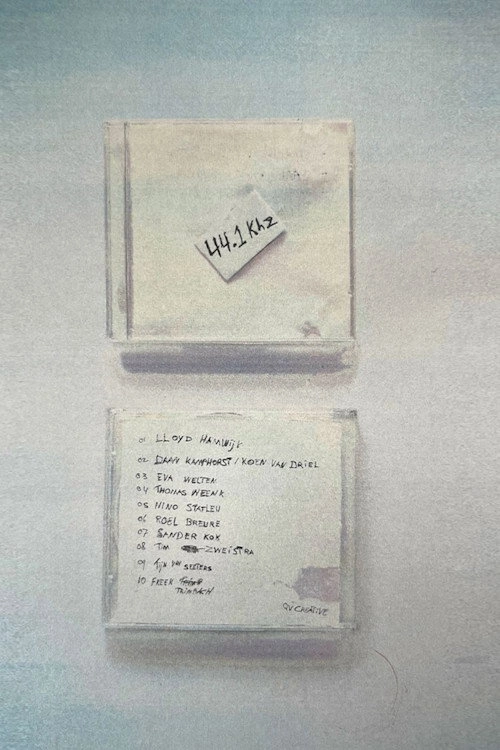 44.1 Khz
01 LLOYD HAMWIJK
02 DAAN KAMPHORST / KOEN VAN DRIEL
03 EVA WELTEN
04 THOMAS WEENK
05 NINO STATLEU
06 ROEL BREURE
07 SANDER KOK
08 TIM ZWEISTRA
09 TIJN VAN SEETERS
10 FREEK
TRIMBACH
QV CREATIVE